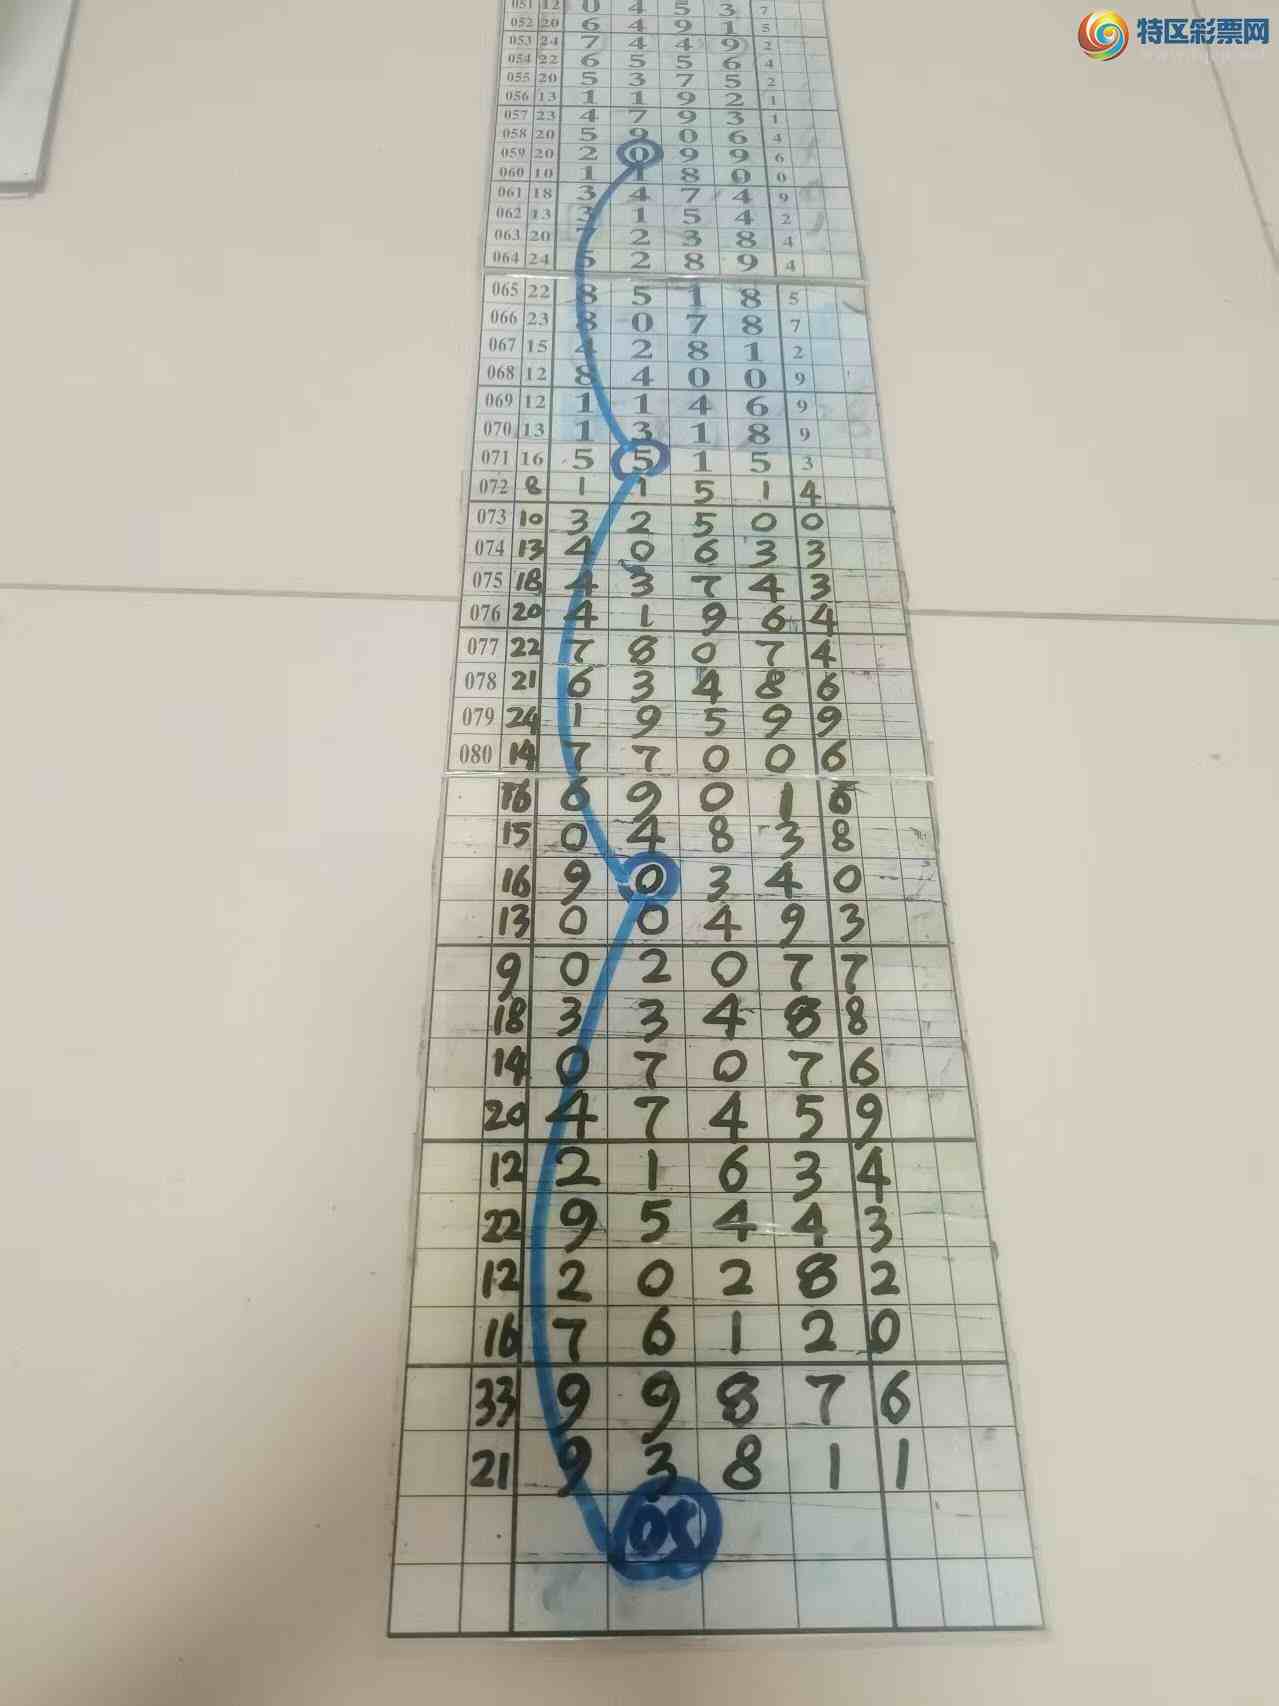 特区彩票网
051 12 0 4 5 3 7
052 20 6 4 9 1 5
053 24 7 4 4 9 2
054 22 6 5 5 6 4
055 20 5 3 7 5 2
056 13 1 1 9 2 1
057 23 4 7 9 3 1
058 20 5 9 0 6 4
059 20 2 0 9 9 6
060 10 1 1 8 0 0
061 18 3 4 7 4 9
062 13 3 1 5 4 2
063 20 7 2 3 8 4
064 24 5 2 8 9 4
065 22 8 5 1 8 5
066 23 8 0 7 8 7
067 15 4 2 8 1 2
068 12 8 4 0 0 9
069 12 1 1 4 6 9
070 13 1 3 1 8 9
071 16 5 5 1 5 3
072 8 1 1 5 1 4
073 10 3 2 5 0 0
074 13 4 0 6 3 3
075 18 4 3 7 4 3
076 20 4 1 9 6 4
077 22 7 8 0 7 4
078 21 6 3 4 8 6
079 24 1 9 5 9 9
080 14 7 7 0 0 6
16 6 9 0 1 6
15 0 4 8 3 8
16 9 0 3 4 0
13 0 0 4 9 3
9 0 2 0 7 7
18 3 3 4 8 8
14 0 7 0 7 6
20 4 7 4 5 9
12 2 1 6 3 4
22 9 5 4 4 3
12 2 0 2 8 2
16 7 6 1 2 0
33 9 9 8 7 6
21 9 3 8 1 1
05